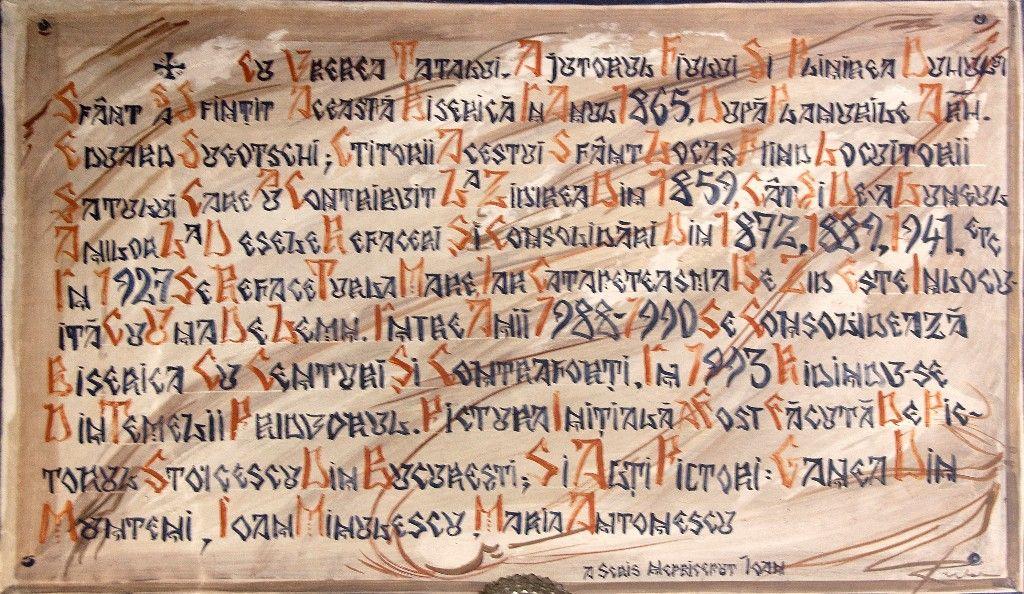 ✠ Cu Vrerea Tatălui. Ajutorul Fiului Și Plinirea Duhului
Sfânt S A Sfințit Această Biserică În Anul 1865, După Planurile Arh.
Eduard Sugotschi; Ctitorii Acestui Sfânt Locaș Fiind Locuitorii
Satului Care Au Contribuit La Zidirea Din 1859, Cât Și De A Lungul
Anilor La Desele Refaceri Și Consolidări Din 1872, 1889, 1941, etc
În 1927 Se Reface Turla Mare Iar Catapeteasma De Zid Este Înlocu-
ită Cu Una De Lemn. Între Anii 1988-1990 Se Consolidează
Biserica Cu Centuri Și Contraforți. În 1993 Ridindu-se
Din Temelii Pridvorul. Pictura Inițială A Fost Făcută De Pic-
torul Stoicescu Din București; Și Alți Pictori: Ganea Din
Munteni, Ioan Minulescu. Maria Antonescu
A Scris Nepriceput Ioan